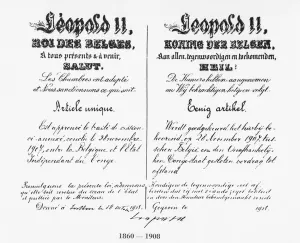 Léopold II,
ROI DES BELGES,
A tous présents & à venir,
SALUT.
Les Chambres ont adopté
et Nous sanctionnons ce qui suit:
Article unique.
Est approuvé le traité de cession
ci-annexé, conclu le 28 novembre
1907, entre la Belgique et l'Etat
Indépendant du Congo.
Promulguons la présente loi, ordonnons
qu'elle soit revêtue du sceau de l'Etat
et publiée par le Moniteur.
Donné à le 18 1908.
Leopold II,
KONING DER BELGEN,
Aan allen, tegenwoordigen en toekomenden,
HEIL:
De Kamers hebben aangenomen
en Wij bekrachtigen hetgeen volgt:
Eenig artikel.
Wordt goedgekeurd het hierbij
gevoegd en 28 November 1907, tus-
schen België en den Onafhankelij-
ken Congostaat gesloten verdrag tot
afstand
Gegeven
Léopold
1860 — 1908